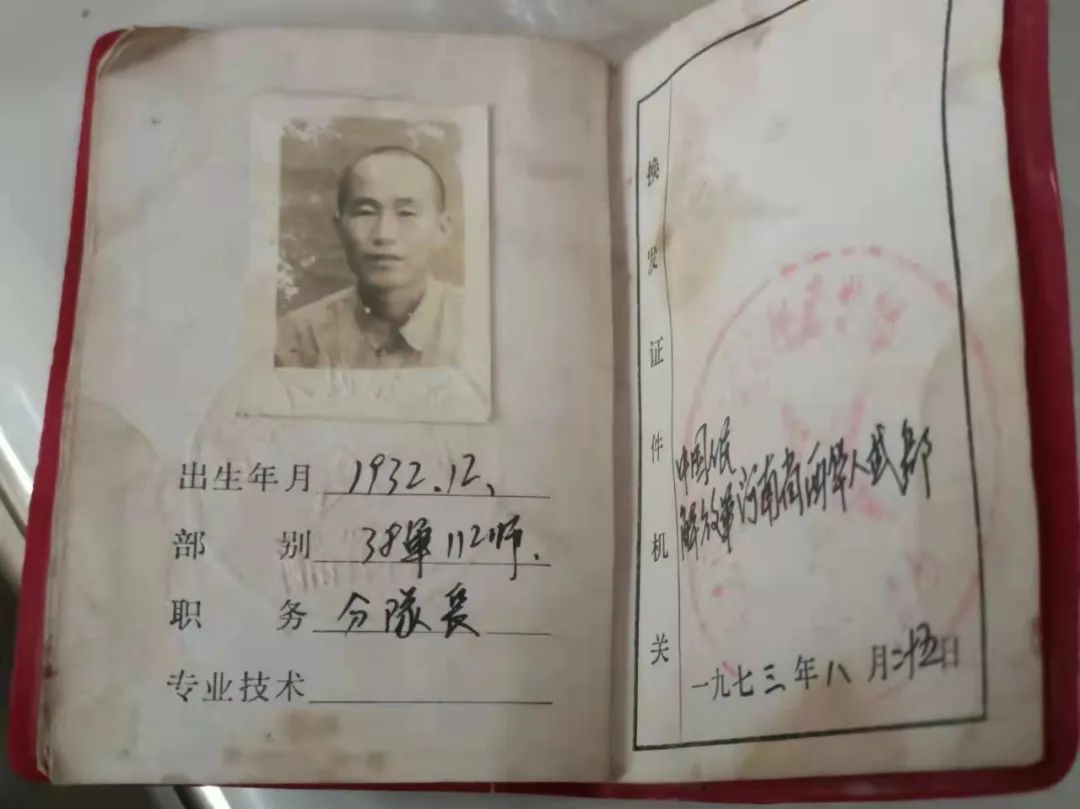 出生年月 1932.12.
部别 38军112师.
职务 分隊長
专业技术
换发证件机关
中国人民
解放军河南省西华人武部
一九七三年八月二十五日